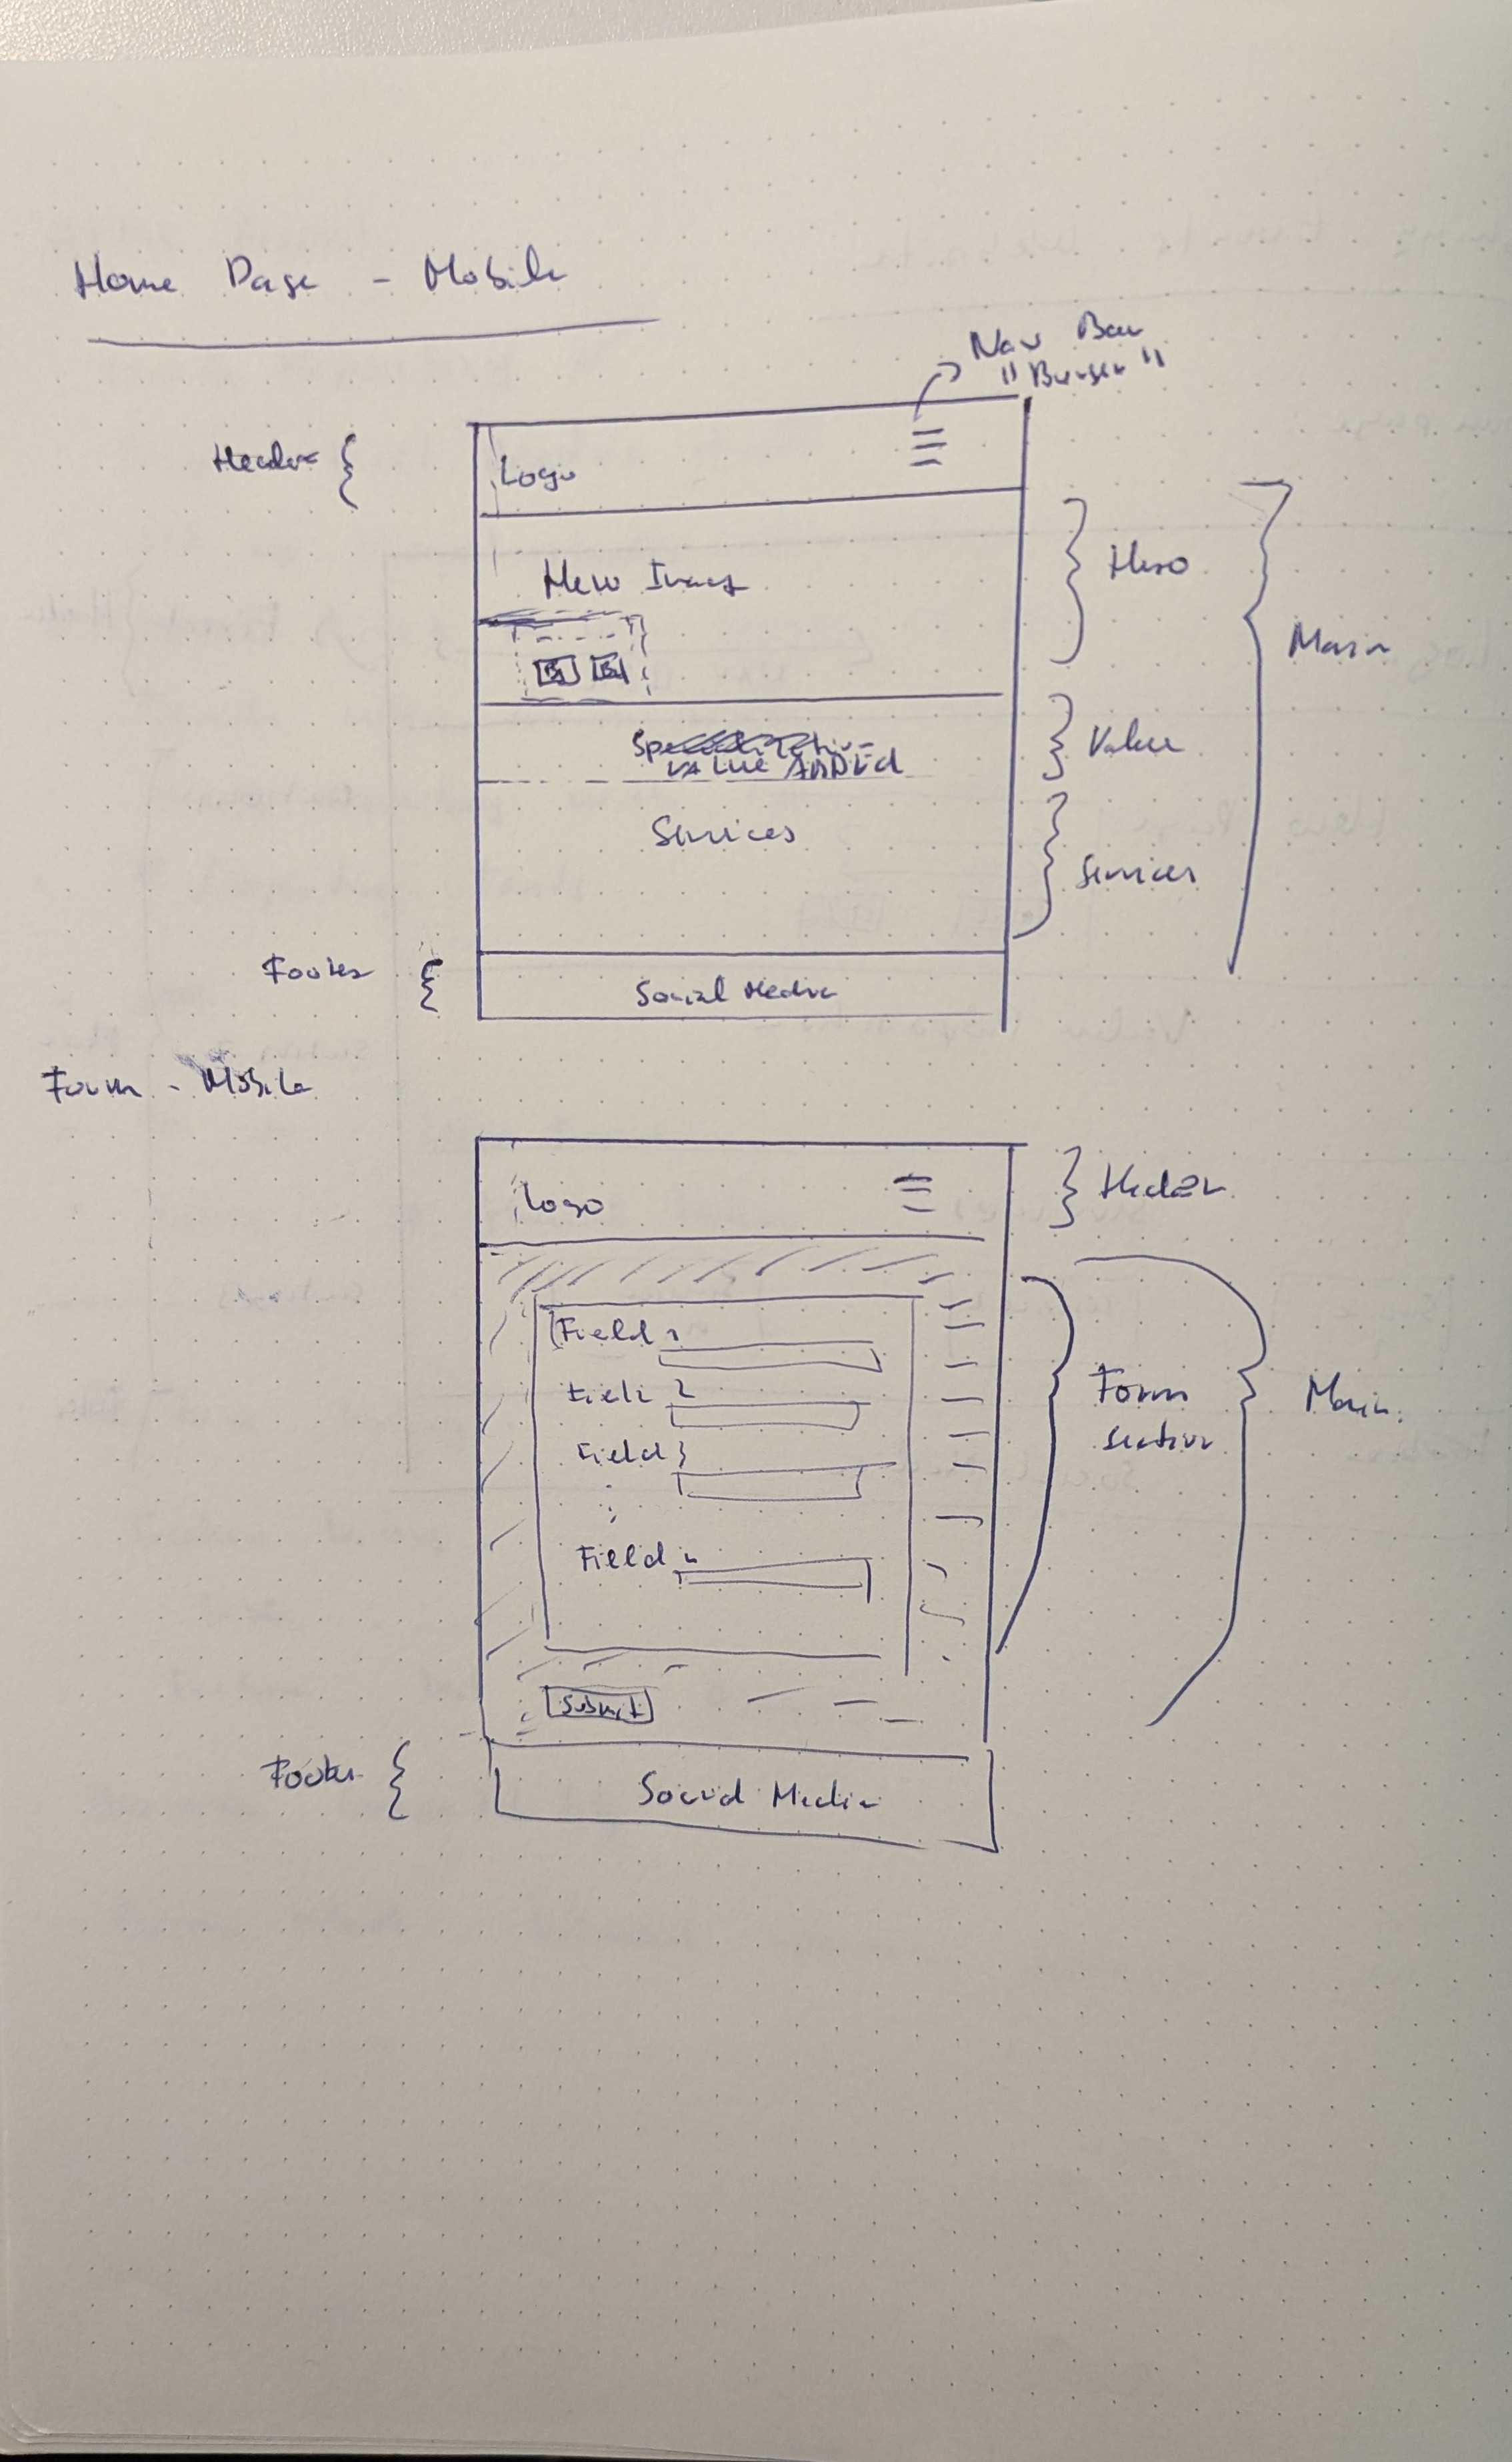 Home Page - Mobile
Nav Bar
"Burger"
Header
Logo
Hero Image
Hero
Main
B B
VALUE ADDEd
Value
Services
Services
Footer
Social Media
Form - Mobile
Logo
Header
Field 1
Field 2
Form
section
Main
Field 3
Field n
Submit
Footer
Social Media